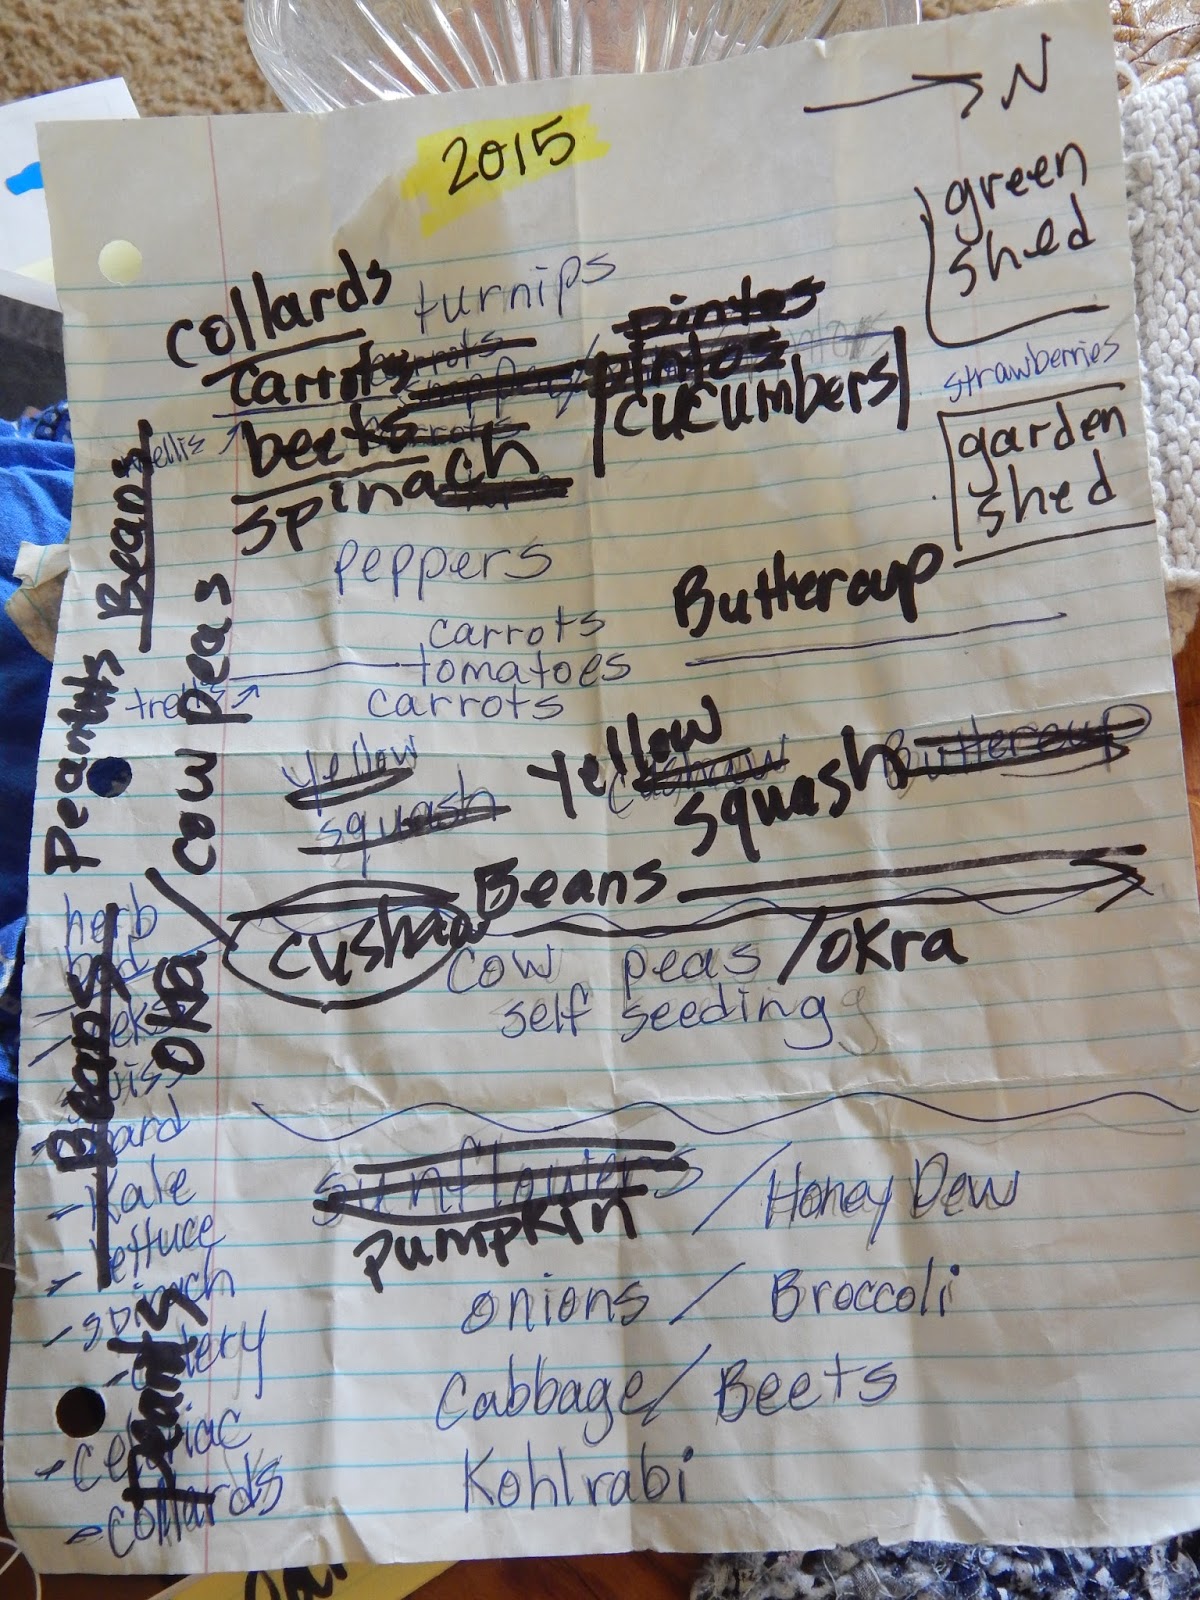 2015
N
green
shed
collards turnips
pintos
carrots carrots
pintos
strawberries
beets carrots
cucumbers
garden
shed
spinach
peppers
Buttercup
carrots
tomatoes
carrots
yellow
squash
Yellow
Cushaw
squash Buttercup
Beans
cushaw
cow peas / OKra
self seeding
sunflowers / Honey Dew
pumpkin
onions / Broccoli
Cabbage / Beets
Kohlrabi
Beans
Peanuts
cow peas /
OKra
Beans
herb
bed
- Kale
- lettuce
- spinach
- celery
- celeriac
- collards